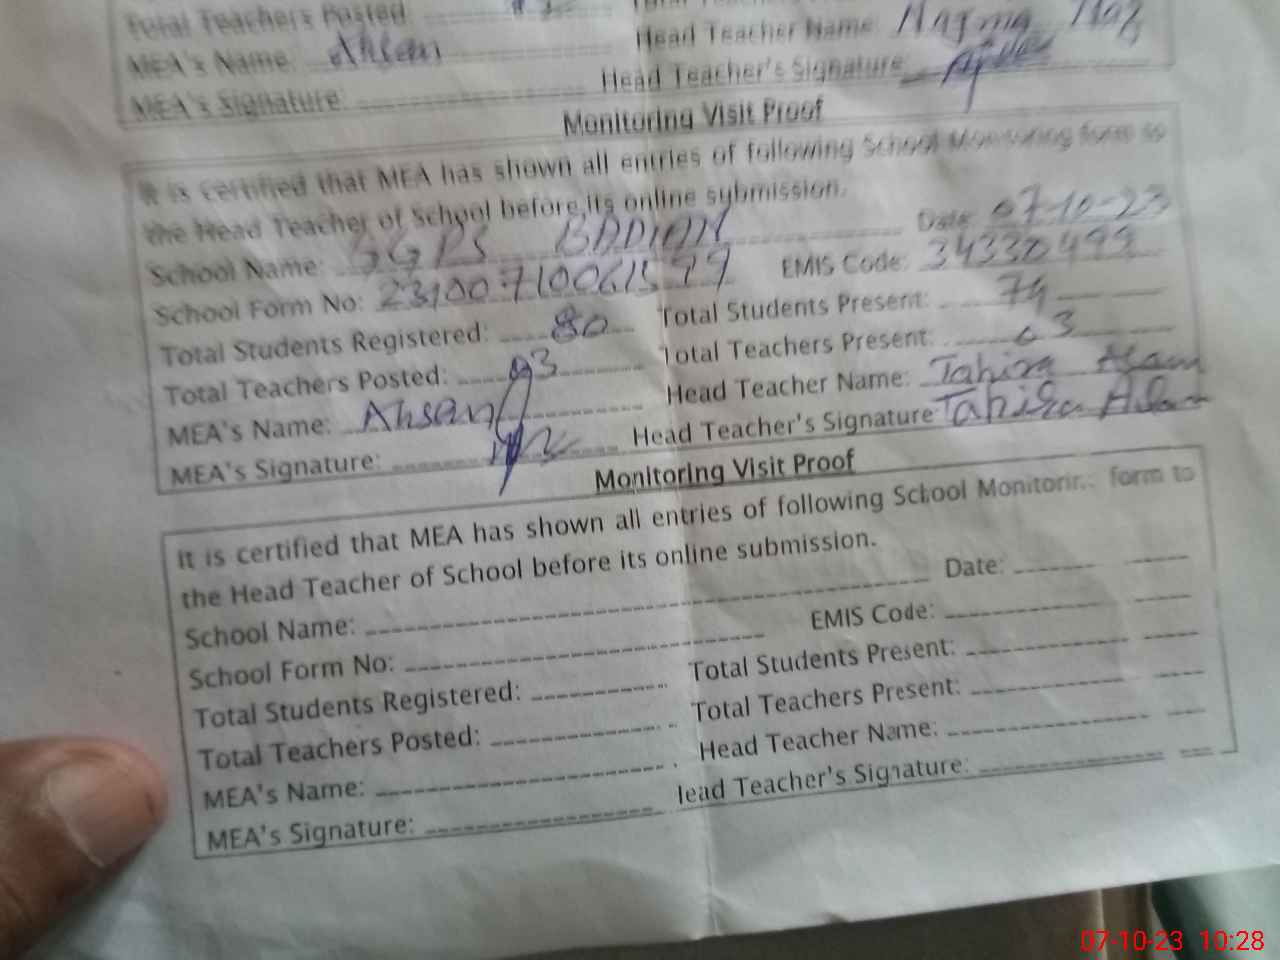 Total Teachers Posted:
MEA's Name: Ahsan Head Teacher Name: Najma Naz
MEA's Signature: Head Teacher's Signature:
Monitoring Visit Proof
It is certified that MEA has shown all entries of following School Monitoring form to
the Head Teacher of School before its online submission.
School Name: GGPS BADIAN Date: 07-10-23
School Form No: EMIS Code:
Total Students Registered: 80 Total Students Present: 74
Total Teachers Posted: 03 Total Teachers Present: 03
MEA's Name: Ahsan Head Teacher Name: Tahira Aslam
MEA's Signature: Head Teacher's Signature Tahira Aslam
Monitoring Visit Proof
It is certified that MEA has shown all entries of following School Monitoring form to
the Head Teacher of School before its online submission.
School Name: Date:
School Form No: EMIS Code:
Total Students Registered: Total Students Present:
Total Teachers Posted: Total Teachers Present:
MEA's Name: Head Teacher Name:
MEA's Signature: lead Teacher's Signature:
07-10-23 10:28